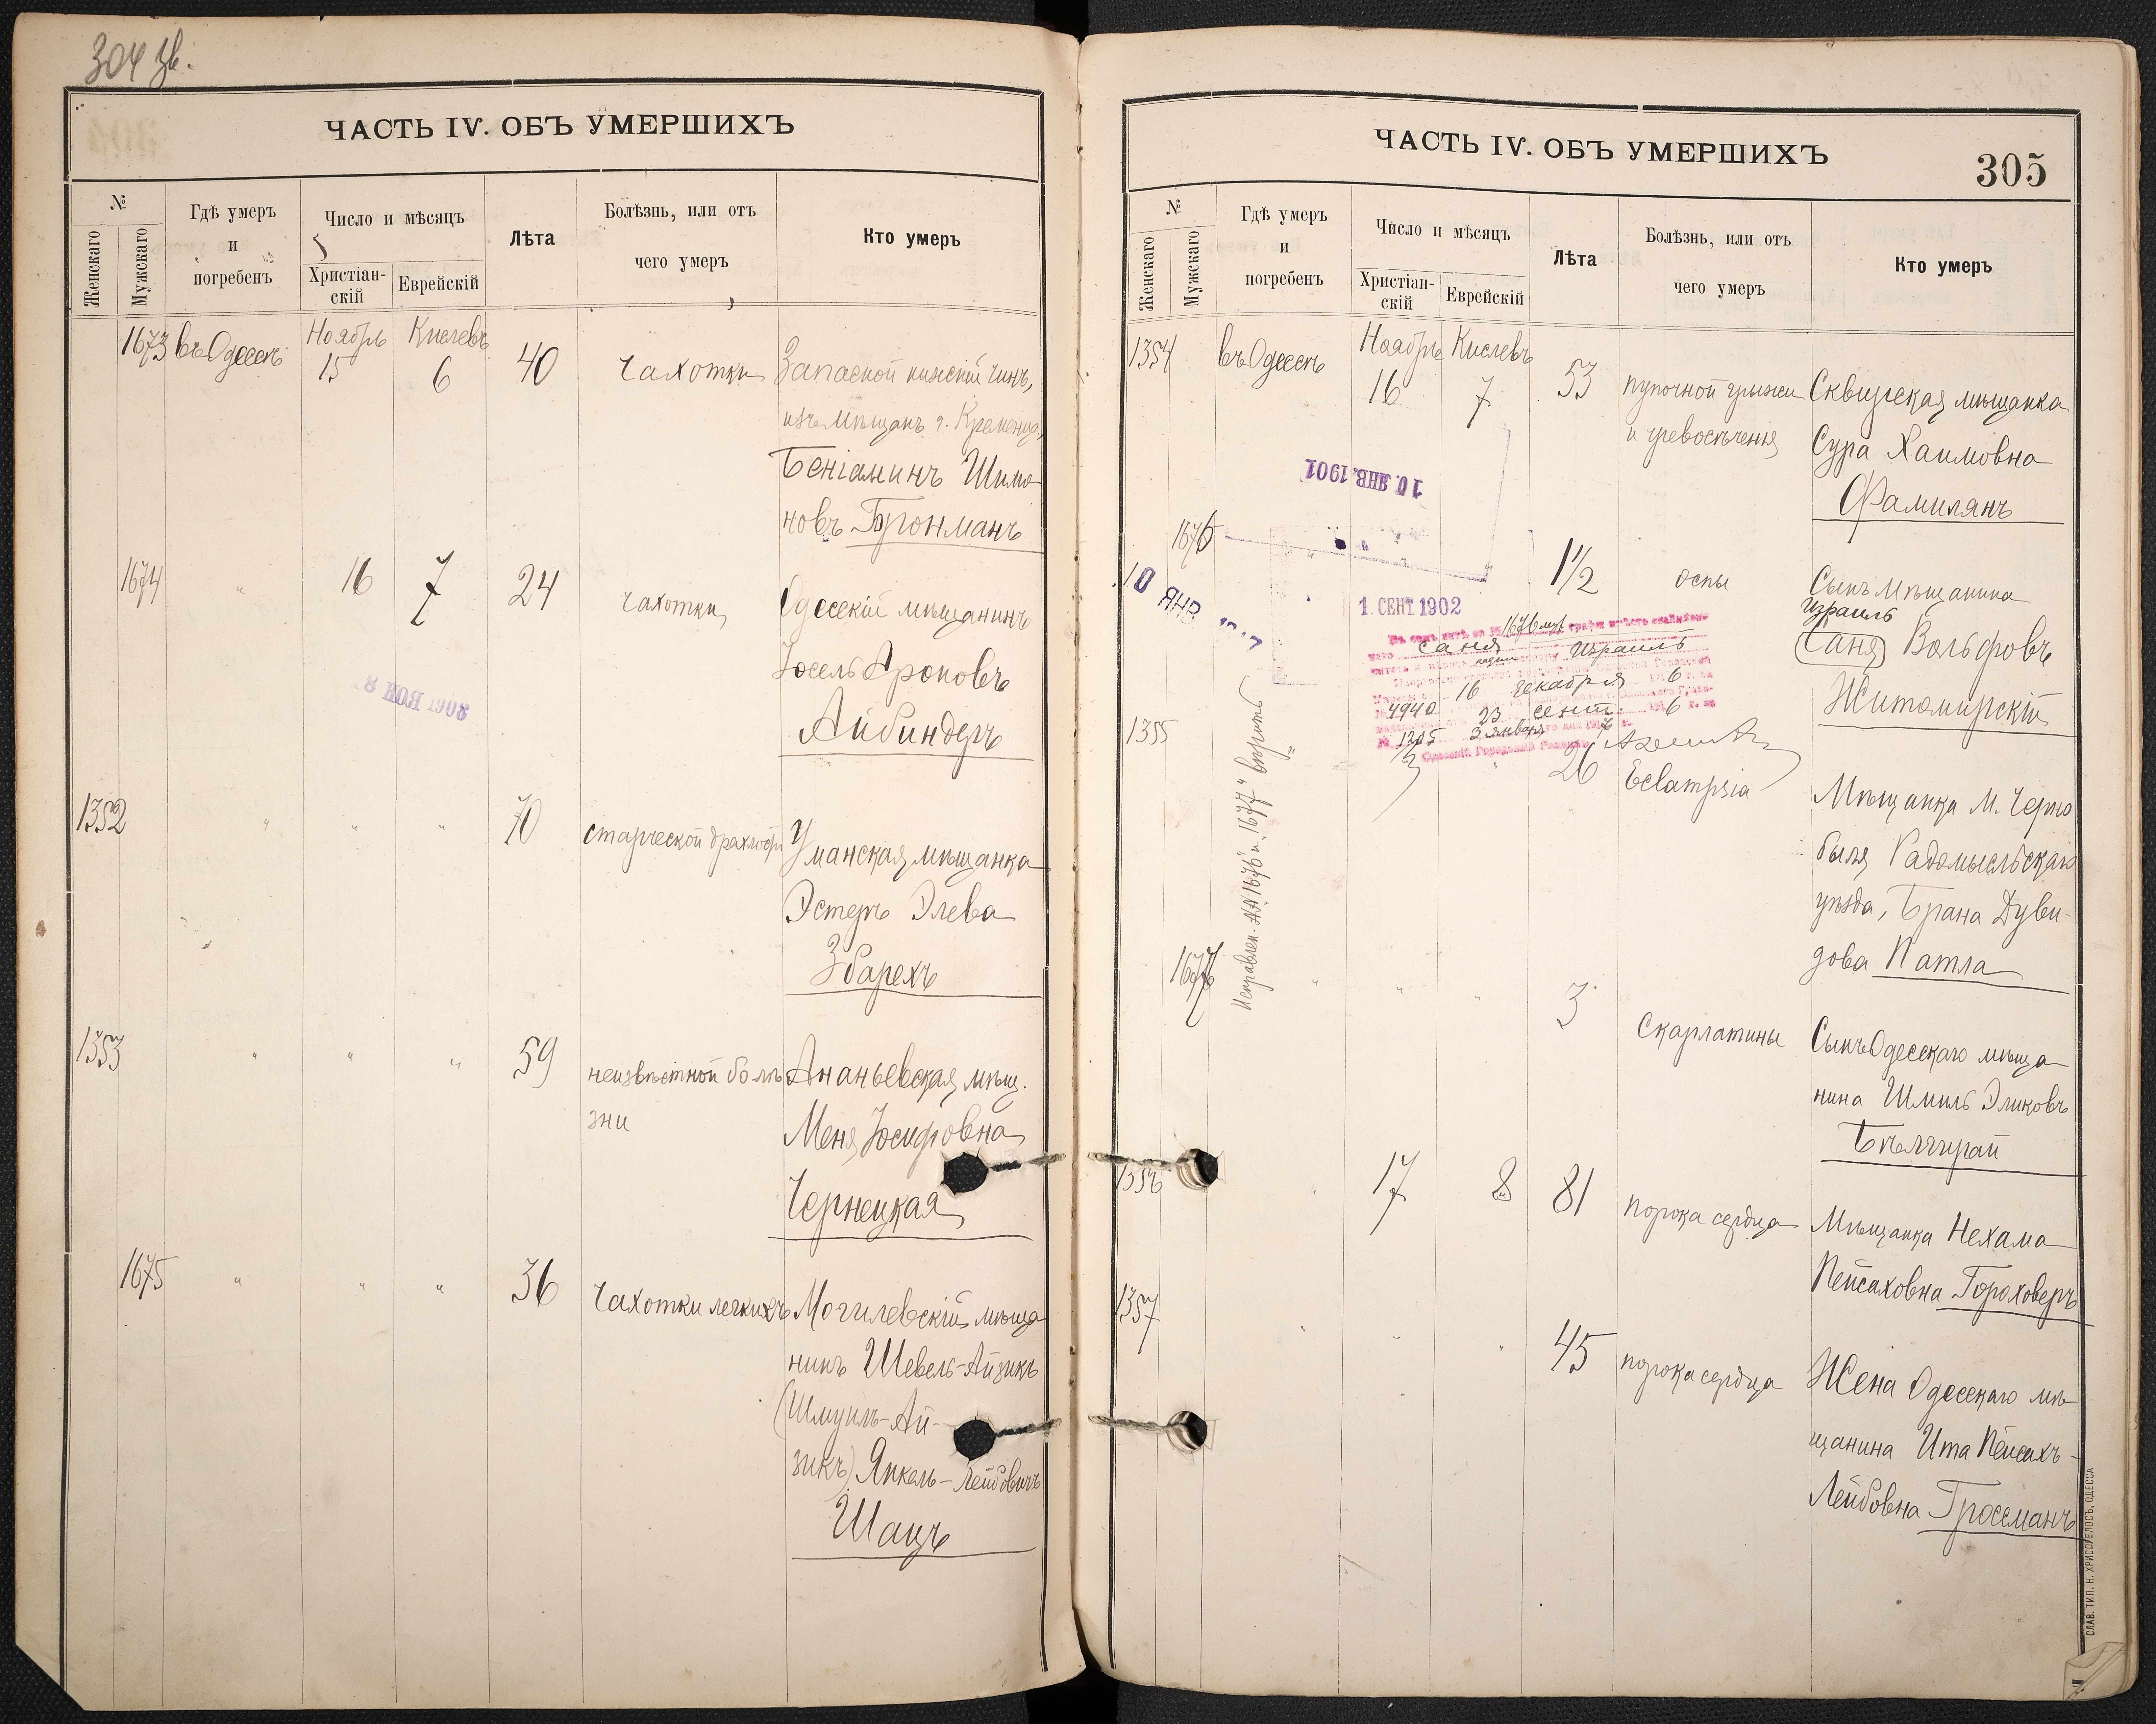 304 зв.
ЧАСТЬ IV. ОБЪ УМЕРШИХЪ
№
Женскаго
Мужскаго
Гдѣ умеръ
и
погребенъ
Число и мѣсяцъ
Христіан-
скій
Еврейскій
Лѣта
Болѣзнь, или отъ
чего умеръ
Кто умеръ
1673 въ Одессѣ Ноябрь 15 Кислевъ 6 40 чахотки Запасной нижній чинъ,
изъ мѣщанъ г. Кременца,
Беніаминъ Шимо
новъ Бронманъ
1674 " 16 7 24 чахотки Одесскій мѣщанинъ
Іосель Ароновъ
Айбиндеръ
1352 " " " 70 старческой дряхлости Уманская мѣщанка
Эстеръ Элева
Збарехъ
1353 " " " 59 неизвѣстной болѣ Ананьевская мѣщ.
зни Меня Іосифовна
Чернецкая
1675 " " " 36 чахотки легкихъ Могилевскій мѣща
нинъ Шевель-Айзикъ
(Шмуиль-Ай-
зикъ) Янкель-Лейбовичъ
Шацъ
ЧАСТЬ IV. ОБЪ УМЕРШИХЪ
305
№
Женскаго
Мужскаго
Гдѣ умеръ
и
погребенъ
Число и мѣсяцъ
Христіан-
скій
Еврейскій
Лѣта
Болѣзнь, или отъ
чего умеръ
Кто умеръ
1354 въ Одессѣ Ноябрь 16 Кислевъ 7 53 пупочной грыжи Сквирская мѣщанка
и чревосѣченія Сура Хаимовна
Фамилянъ
10. ЯНВ. 1901
1676 1 1/2 оспы Сынъ мѣщанина
Израиль
Саня Вольфовъ
Житомирскій
10 ЯНВ
1. СЕНТ 1902
1676 муж
Саня Израиль
16 декабря 6
4940 23 сент. 6
1205 3 января 7
Исправлен. №№ 1676 и "1677" вѣрить
1355 " 26 Eclampsia Мѣщанка м. Черно
быля Радомысльскаго
уѣзда, Брана Дуви-
дова Патла
1677 " " " 3 Скарлатины Сынъ Одесскаго мѣща
нина Шмиль Эликовъ
Бѣлгурай
1356 " 17 8 81 порока сердца Мѣщанка Нехама
Пейсаховна Гороховеръ
1357 " " " 45 порока сердца Жена Одесскаго мѣ
щанина Ита Пейсахъ-
Лейбовна Гроссманъ
СЛАВ. ТИП. Н. ХРИСОГЕЛОСЪ, ОДЕССА